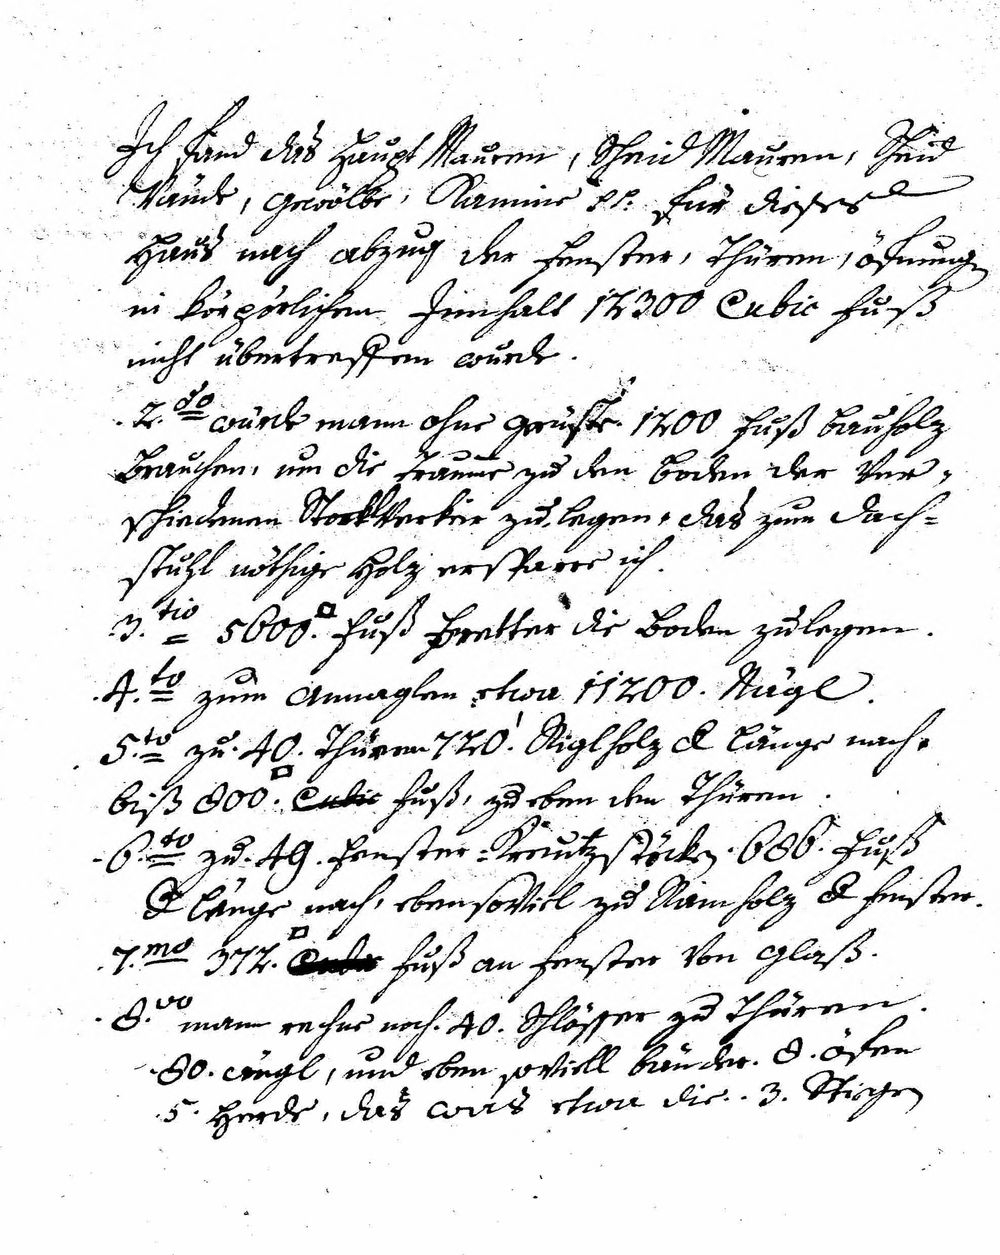 Ich fand das Haupt Mauren, Scheid Mauren, Scheid
Wände, gewölbe, Kamine pp. für dieses
Haus nach abzug der Fenster, Thüren, öfnungen
in körperlichem Innhalt 12300 Cubic Fuß
nicht übertreffen wurde.
2.do würde mann ohne gerüste. 1200 Fuß bauholz
brauchen, um die träume zu den boden der Ver-
schiedenen StockWerker zu legen, das zum dach=
stuhl nöthige Holz ersparre ich.
3.tio 5600.□ Fuß bretter die boden zulegen.
4.to zum annaglen etwa 11200. Nägl.
5.to zu. 40. Thüren 720.' Riglholz d länge nach,
biß 800.□ Cubic Fuß, zu eben den Thüren.
6.to zu. 49. Fenster-Kreutzstöcken. 686. Fuß
d länge nach, ebensoviel zu Ramholz d Fenster.
7.mo 372.□ Cubic Fuß an Fenster Von glaß.
8.vo mann rechne noch. 40. Schlösser zu Thüren.
80. angl, und eben soviell bänder. 8. öfen
5. Herde, das was etwa die. 3. Stiegen